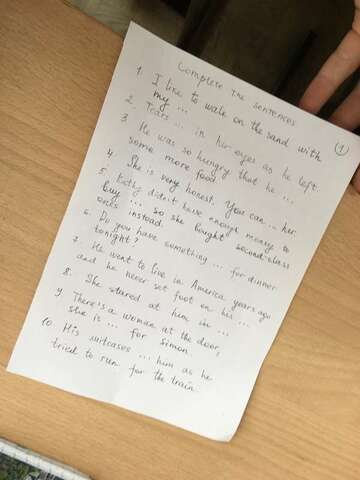 Complete the sentences
1
1. I like to walk on the sand with
my ...
2. Tears ... in her eyes as he left.
3 He was so hungry that he ...
some more food.
4. She is very honest. You can ... her.
5. Kathy didn't have enough money to
buy ... so she bought second-class
ones instead.
6. Do you have something ... for dinner
tonight?
7. He went to live in America years ago
and he never set foot on his ...
8. She stared at him in ...
9. There's a woman at the door,
she is ... for Simon.
10. His suitcases ... him as he
tried to run for the train.